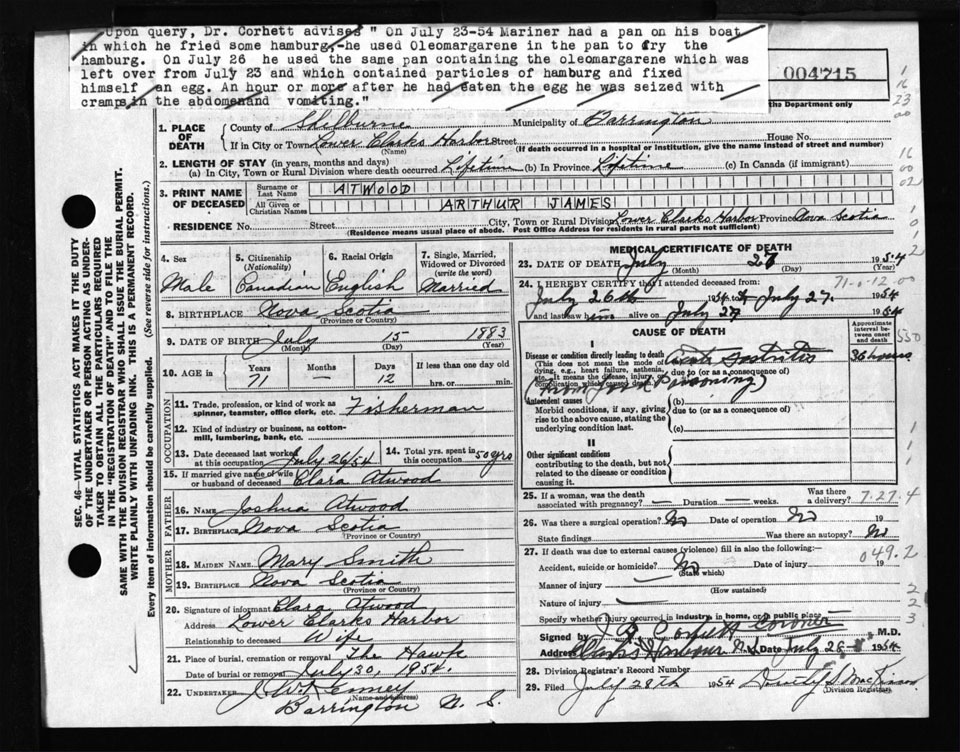 Upon query, Dr. Corhett advises " On July 23-54 Mariner had a pan on his boat
in which he fried some hamburg,-he used Oleomargarene in the pan to fry the
hamburg. On July 26 he used the same pan containing the oleomargarene which was
left over from July 23 and which contained particles of hamburg and fixed
himself an egg. An hour or more after he had eaten the egg he was seized with
cramps in the abdomenand vomiting."
004715
the Department only
1
16
23
00
1. PLACE OF DEATH
County of Shilburne Municipality of Barrington
If in City or Town Lower Clarks Harbor Street House No.
(Name) (If death occurred in a hospital or institution, give the name instead of street and number)
2. LENGTH OF STAY (in years, months and days)
(a) In City, Town or Rural Division where death occurred Lifetime (b) In Province Lifetime (c) In Canada (if immigrant)
16
00
02
3. PRINT NAME OF DECEASED
Surname or Last Name ATWOOD
All Given or Christian Names ARTHUR JAMES
RESIDENCE No. Street City, Town or Rural Division Lower Clarks Harbor Province Nova Scotia
(Residence means usual place of abode. Post Office Address for residents in rural parts not sufficient)
1
0
1
2
SEC. 46—VITAL STATISTICS ACT MAKES IT THE DUTY
OF THE UNDERTAKER OR PERSON ACTING AS UNDER-
TAKER TO OBTAIN ALL THE PARTICULARS REQUIRED
IN THE "REGISTRATION OF DEATH" AND TO FILE THE
SAME WITH THE DIVISION REGISTRAR WHO SHALL ISSUE THE BURIAL PERMIT.
WRITE PLAINLY WITH UNFADING INK. THIS IS A PERMANENT RECORD.
Every item of information should be carefully supplied. (See reverse side for instructions.)
4. Sex
Male
5. Citizenship
(Nationality)
Canadian
6. Racial Origin
English
7. Single, Married,
Widowed or Divorced
(write the word)
Married
8. BIRTHPLACE Nova Scotia
(Province or Country)
9. DATE OF BIRTH July 15 1883
(Month) (Day) (Year)
10. AGE in
Years Months Days If less than one day old
71 — 12 hrs. or min.
OCCUPATION
11. Trade, profession, or kind of work as
spinner, teamster, office clerk, etc. Fisherman
12. Kind of industry or business, as cotton-
mill, lumbering, bank, etc.
13. Date deceased last worked
at this occupation July 26/54
14. Total yrs. spent in
this occupation 50 yrs
15. If married give name of wife
or husband of deceased Clara Atwood
FATHER
16. Name Joshua Atwood
17. Birthplace Nova Scotia
(Province or Country)
MOTHER
18. Maiden Name Mary Smith
19. Birthplace Nova Scotia
(Province or Country)
20. Signature of informant Clara Atwood
Address Lower Clarks Harbor
Relationship to deceased Wife
21. Place of burial, cremation or removal The Hawk
Date of burial or removal July 30, 1954.
22. Undertaker
(Name and address)
Barrington N. S.
MEDICAL CERTIFICATE OF DEATH
23. DATE OF DEATH July 27 1954
(Month) (Day) (Year)
24. I HEREBY CERTIFY that I attended deceased from: 71-0-12.00
July 26th 1954 to July 27. 1954
and last saw him alive on July 27 1954
CAUSE OF DEATH
Approximate
interval be-
tween onset
and death
I
Disease or condition directly leading to death Acute Gastritis 36 hours
(This does not mean the mode of
dying, e.g., heart failure, asthenia,
etc. It means the disease, injury, or
complication which caused death.)
due to (or as a consequence of)
(from food Poisoning)
Antecedent causes
Morbid conditions, if any, giving
rise to the above cause, stating the
underlying condition last.
(b)
due to (or as a consequence of)
(c)
II
Other significant conditions
contributing to the death, but not
related to the disease or condition
causing it.
1
1
1
25. If a woman, was the death
associated with pregnancy? — Duration — weeks. Was there
a delivery? 7.27.4
26. Was there a surgical operation? No Date of operation No 19
State findings Was there an autopsy? No
27. If death was due to external causes (violence) fill in also the following:—
Accident, suicide or homicide? No Date of injury 19
(State which)
049.2
Manner of injury
(How sustained)
Nature of injury
Specify whether injury occurred in industry, in home, or in public place
2
2
3
Signed by Coroner M.D.
Address Clarks Harbour N.S. Date July 1954
28. Division Registrar's Record Number
29. Filed July 28th 1954 Dorothy S MacKinnon
(Division Registrar)